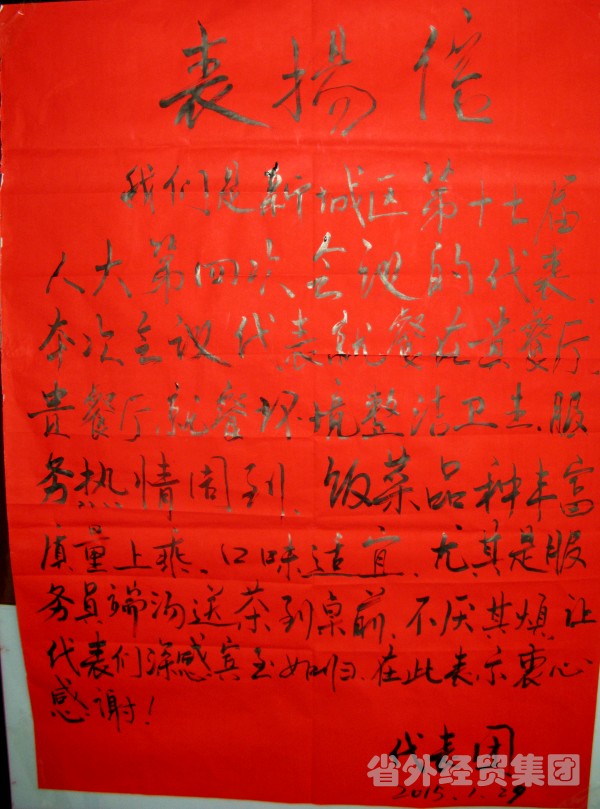 表扬信
我们是新城区第十七届
人大第四次会议的代表、
本次会议代表就餐在贵餐厅、
贵餐厅就餐环境整洁卫生、服
务热情周到、饭菜品种丰富
质量上乘、口味适宜、尤其是服
务员端汤送茶到桌前、不厌其烦、让
代表们深感宾至如归、在此表示衷心
感谢！
代表团
2015.1.29
省外经贸集团